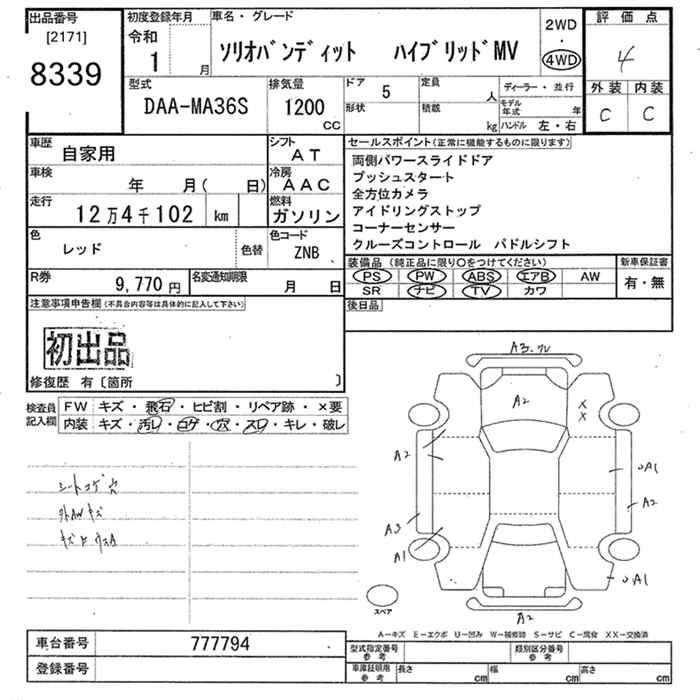 出品番号
[2171]
8339
初度登録年月
令和
1 月
車名・グレード
ソリオバンディット ハイブリッドMV
2WD
・
4WD
評価点
4
外装 内装
C C
型式
DAA-MA36S
排気量
1200
CC
ドア 5
形状
定員 人
積載 kg
ディーラー・並行
モデル年式 年
ハンドル 左・右
車歴
自家用
シフト
AT
車検
年 月( 日)
冷房
AAC
走行
12万4千102 km
燃料
ガソリン
色
レッド
色替
色コード
ZNB
R券
9,770円
名変通知期限
月 日
セールスポイント(正常に機能するものに限ります)
両側パワースライドドア
プッシュスタート
全方位カメラ
アイドリングストップ
コーナーセンサー
クルーズコントロール パドルシフト
装備品(純正品に限り〇をつけてください)
PS PW ABS エアB AW
SR ナビ TV カワ
新車保証書
有・無
後日品
注意事項申告欄(不具合内容等は具体的に記入して下さい)
初出品
修復歴 有〔箇所 〕
検査員
記入欄
FW キズ・飛石・ヒビ割・リペア跡・×要
内装 キズ・汚レ・コゲ・穴・スレ・キレ・破レ
シートコゲ穴
外AWキズ
A3
A2
X
X
A2
A1
A2
A3
A1
A1
A2
スペア
A−キズ E−エクボ U−凹み W−補修跡 S−サビ C−腐食 XX−交換済
車台番号 777794
登録番号
型式指定番号
参考
類別区分番号
参考
車庫証明用
参考
長さ cm
幅 cm
高さ cm